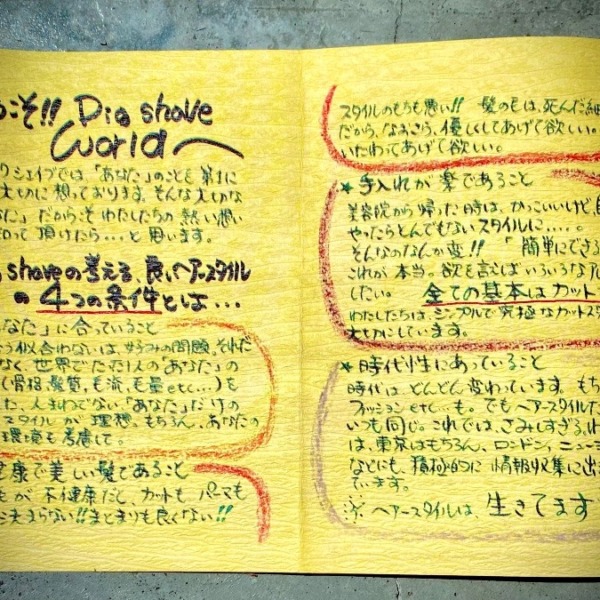 うこそ!! Dig shave
World
ク シェイブでは「あなた」のことも 第1に
大切に 想っております。そんな大切な
なた」だからこそ わたしたちの 熱い想い
知って 頂けたら…と 思います。
shaveの考える 良いヘアースタイル
の 4つの条件とは…
なた」に 合っていること
う似合わないは、好うみの問題。それだ
なく、世界でただ1人の「あなた」の
(骨格、髪質、毛流、毛量etc…)を
た、人まねでない「あなた」だけの
スタイル が 理想。もちろん、あなたの
環境も 考慮して。
健康で 美しい 髪で あること
もが 不健康だし、カットも パーマも
まらない!! まとまりも良くない!!
スタイルのもちも悪い!! 髪の毛は、死んだ細
だから、なおこら、優しくしてあげて欲しい。
いたわってあげて欲しい。
★ 手入れが 楽であること
美容院から 帰った時は、かっこいいけど、自
やったらとんでもないスタイルに…。
そんなのなんか変!! 「簡単にできる
これが 本当。欲を言えば いろいろなア
したい。 全ての基本はカット
わたしたちは、シンプルで 究極な カットスタ
大切にしています。
★ 時代性にあっていること
時代は どんどん 変わっています。もち
ファッション etc…も。でもヘアースタイルだ
いつも 同じ。これでは、さみしすぎる。わ
は、東京はもちろん、ロンドン、ニュー
などにも、積極的に 情報収集に出
ています。
※ ヘアースタイルは、生きてます